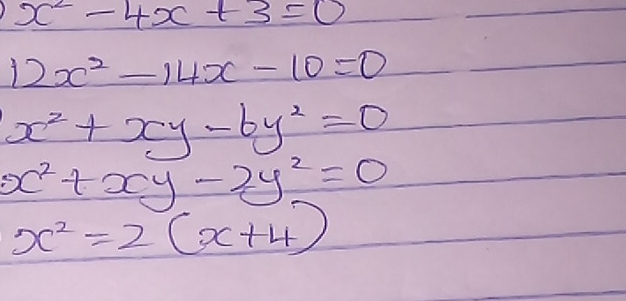 x² - 4x + 3 = 0
12x² - 14x - 10 = 0
x² + xy - 6y² = 0
x² + xy - 2y² = 0
x² = 2 (x+4)